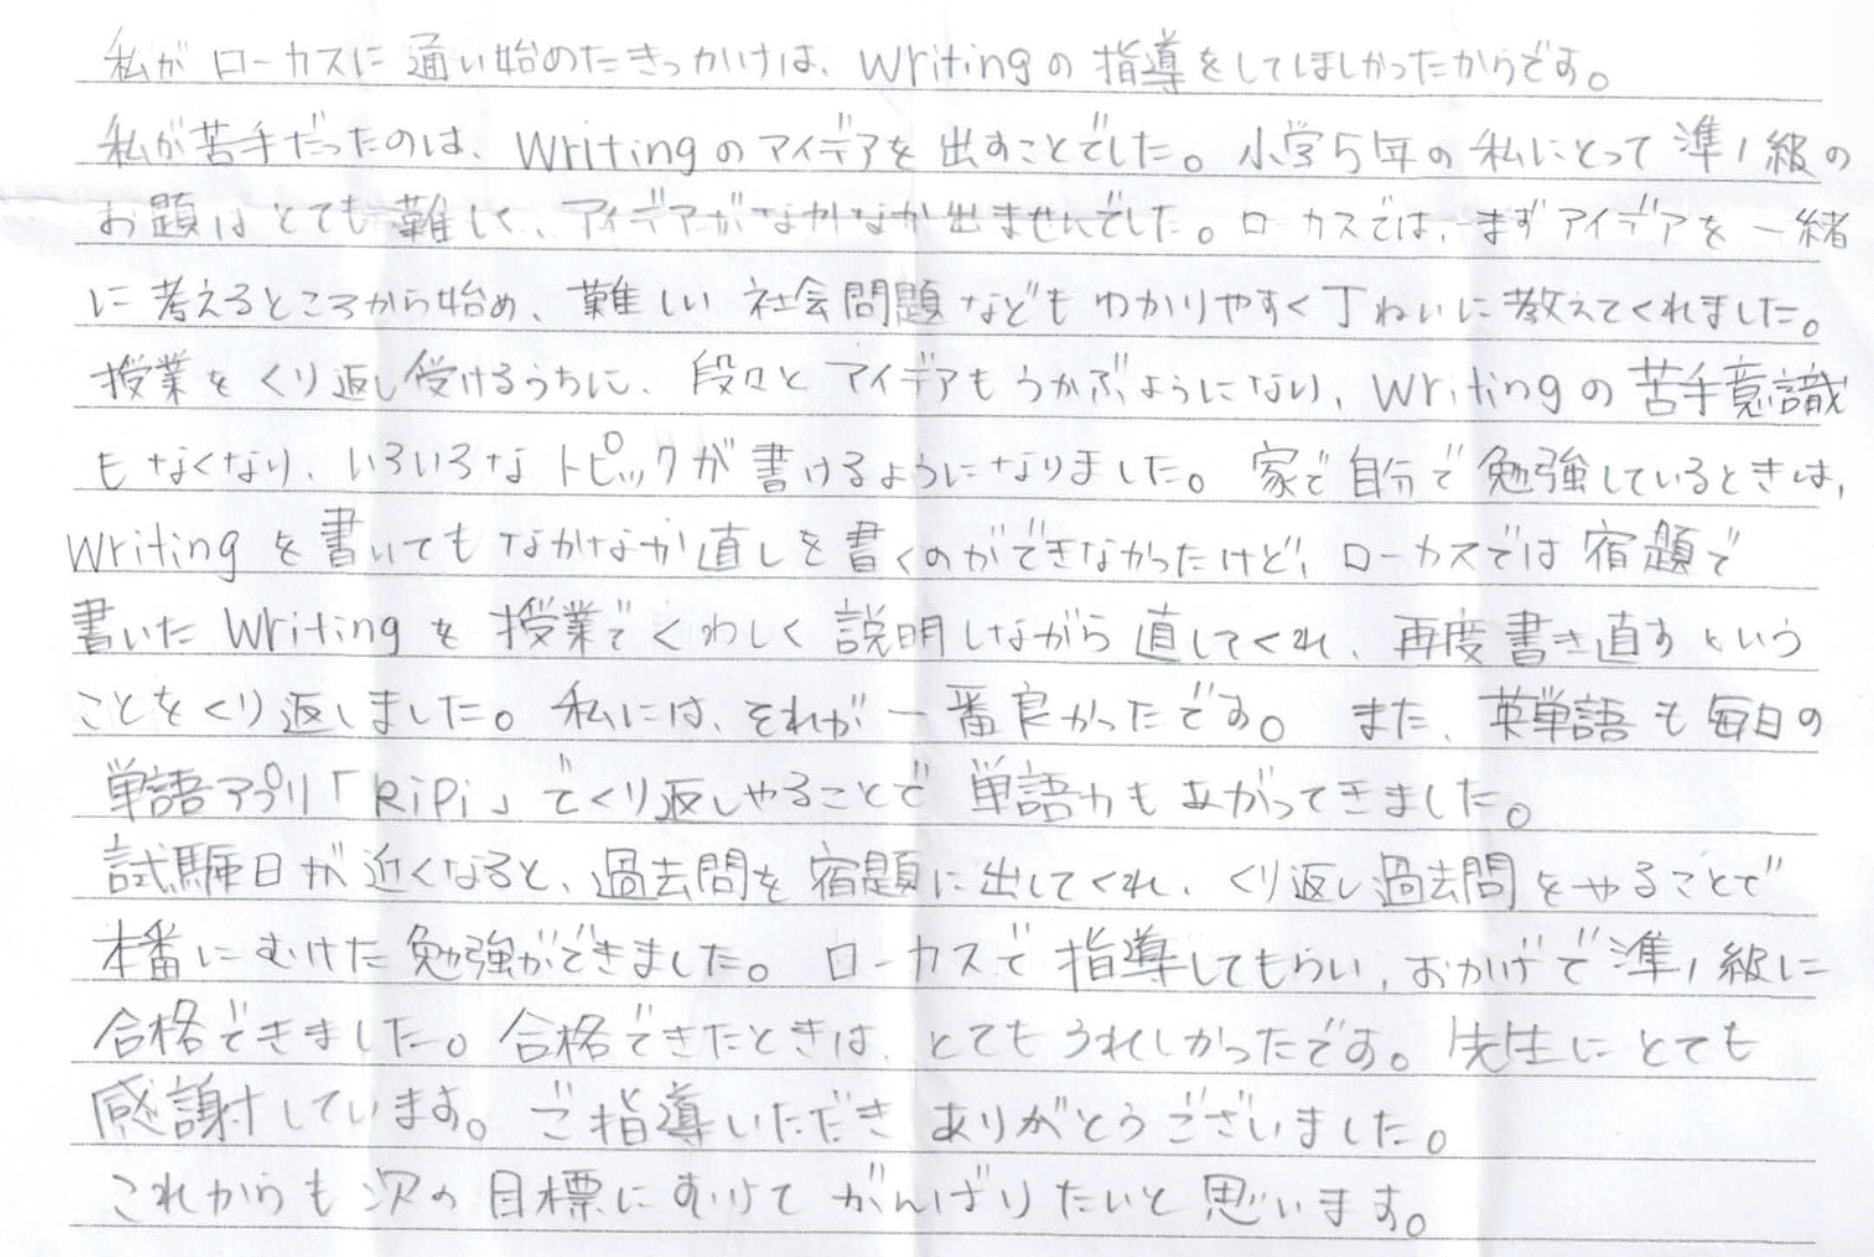 私がローカスに通い始めたきっかけは、Writingの指導をしてほしかったからです。
私が苦手だったのは、Writingのアイデアを出すことでした。小学5年の私にとって準1級の
お題はとても難しく、アイデアがなかなか出ませんでした。ローカスでは、まずアイデアを一緒
に考えるところから始め、難しい社会問題などもわかりやすく丁ねいに教えてくれました。
授業をくり返し受けるうちに、段々とアイデアもうかぶようになり、Writingの苦手意識
もなくなり、いろいろなトピックが書けるようになりました。家で自分で勉強しているときは、
Writingを書いてもなかなか直しを書くのができなかったけど、ローカスでは宿題で
書いたWritingを授業でくわしく説明しながら直してくれ、再度書き直すという
ことをくり返しました。私には、それが一番良かったです。また、英単語も毎日の
単語アプリ「RiPi」でくり返しやることで単語力もあがってきました。
試験日が近くなると、過去問を宿題に出してくれ、くり返し過去問をやることで
本番にむけた勉強ができました。ローカスで指導してもらい、おかげで準1級に
合格できました。合格できたときは、とてもうれしかったです。先生にとても
感謝しています。ご指導いただきありがとうございました。
これからも次の目標にむけてがんばりたいと思います。